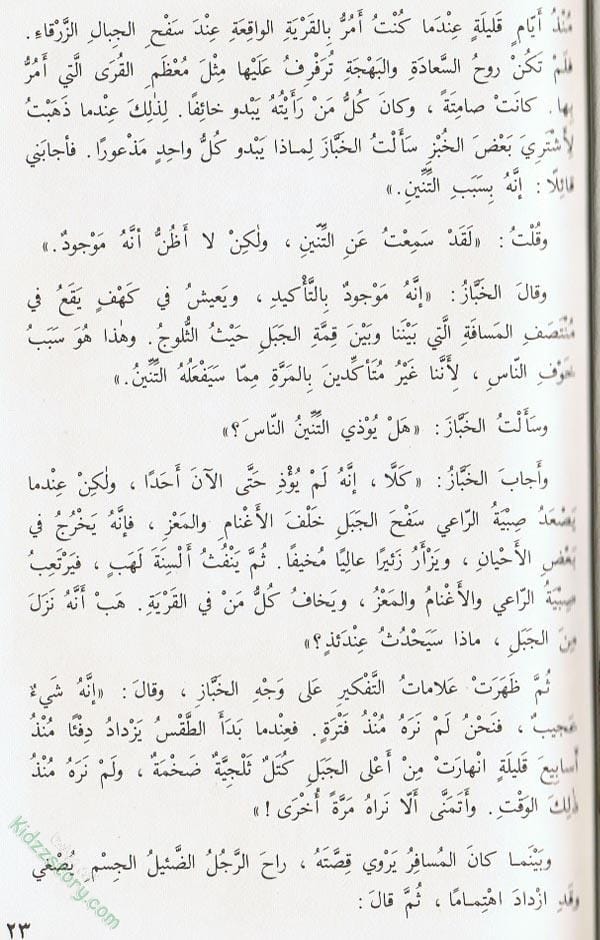 مُنْذُ أَيَّامٍ قَليلَةٍ عِنْدَما كُنْتُ أَمُرُّ بِالقَرْيَةِ الواقِعَةِ عِنْدَ سَفْحِ الجِبالِ الزَّرْقاءِ.
فَلَمْ تَكُنْ روحُ السَّعادَةِ والبَهْجَةِ تُرَفْرِفُ عَلَيْها مِثْلَ مُعْظَمِ القُرَى الَّتي أَمُرُّ
بِها. كانَتْ صامِتَةً، وكانَ كُلُّ مَنْ رَأَيْتُهُ يَبْدو خائِفًا. لِذٰلِكَ عِنْدما ذَهَبْتُ
لِأَشْتَرِيَ بَعْضَ الخُبْزِ سَأَلْتُ الخَبَّازَ لِماذا يَبْدو كُلُّ واحِدٍ مَذْعورًا. فأجابَني
قائِلًا: إنَّهُ بِسَبَبِ التِّنِّينِ.»
وقُلْتُ: «لَقَدْ سَمِعْتُ عَنِ التِّنِّينِ، ولٰكِنْ لا أَظُنُّ أنَّهُ مَوْجودٌ.»
وقالَ الخَبَّازُ: «إنَّهُ مَوْجودٌ بِالتَّأْكيدِ، ويَعيشُ في كَهْفٍ يَقَعُ في
مُنْتَصَفِ المَسافَةِ الَّتي بَيْنَنا وبَيْنَ قِمَّةِ الجَبَلِ حَيْثُ الثُّلوجُ. وهٰذا هُوَ سَبَبُ
خَوْفِ النّاسِ، لِأَنَّنا غَيْرُ مُتَأَكِّدينَ بِالمَرَّةِ مِمّا سَيَفْعَلُهُ التِّنِّينُ.»
وسَأَلْتُ الخَبَّازَ: «هَلْ يُوْذي التِّنِّينُ النّاسَ؟»
وأَجابَ الخَبَّازُ: «كَلَّا، إنَّهُ لَمْ يُؤْذِ حَتَّى الآنَ أَحَدًا، ولٰكِنْ عِنْدما
يَصْعَدُ صِبْيَةُ الرّاعي سَفْحَ الجَبَلِ خَلْفَ الأَغْنامِ والمَعْزِ، فإنَّهُ يَخْرُجُ في
بَعْضِ الأَحْيانِ، ويَزْأَرُ زَئيرًا عالِيًا مُخيفًا. ثُمَّ يَنْفُثُ أَلْسِنَةَ لَهَبٍ، فَيَرْتَعِبُ
صِبْيَةُ الرّاعي والأَغْنامُ والمَعْزُ، ويَخافُ كُلُّ مَنْ في القَرْيَةِ. هَبْ أَنَّهُ نَزَلَ
مِنَ الجَبَلِ، ماذا سَيَحْدُثُ عِنْدَئذٍ؟»
ثُمَّ ظَهَرَتْ عَلاماتُ التَّفْكيرِ عَلى وَجْهِ الخَبَّازِ، وقالَ: «إنَّهُ شَيءٌ
عَجيبٌ، فَنَحْنُ لَمْ نَرَهُ مُنْذُ فَتْرَةٍ. فعِنْدما بَدَأَ الطَّقْسُ يَزْدادُ دِفْئًا مُنْذُ
أَسابيعَ قَليلَةٍ انْهارَتْ مِنْ أَعْلى الجَبَلِ كُتَلٌ ثَلْجِيَّةٌ ضَخْمَةٌ، ولَمْ نَرَهُ مُنْذُ
ذٰلِكَ الوَقْتِ. وأَتَمَنَّى أَلّا نَراهُ مَرَّةً أُخْرَى!»
وبَيْنَما كانَ المُسافِرُ يَرْوي قِصَّتَهُ، راحَ الرَّجُلُ الضَّئيلُ الجِسْمِ يُصْغي
وقَدِ ازْدادَ اهْتِمامًا، ثُمَّ قالَ:
٢٣
Kidzzstory.com